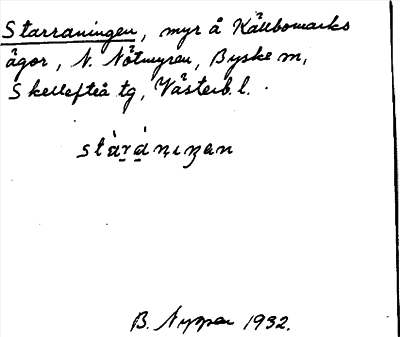 Starraningen, myr å Källbomarks
ägor, N. Nötmyren, Byske m,
Skellefteå tg, Västerb. l.
stàránıŋen
B. 1932.